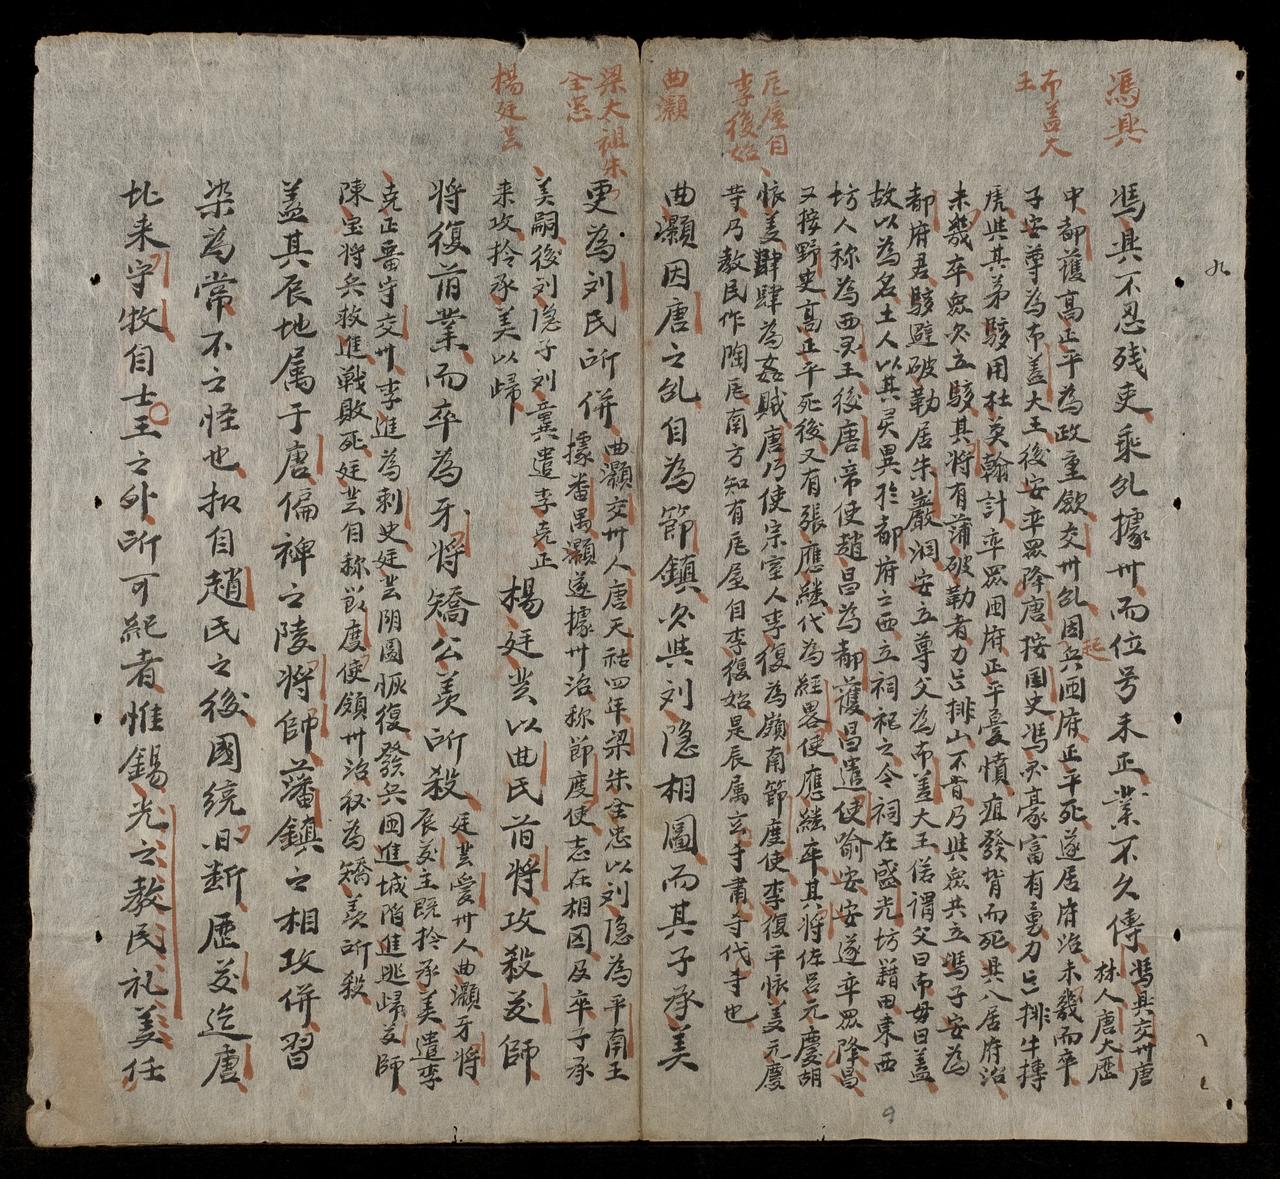 馮興
布盖大
王
瓦屋自
李復始
曲灝
梁太祖朱
全忠
楊廷芸
九
馮興不忍残吏乘乱據州而位号未正業不久傳
馮興交州唐
林人唐大歷
中都護高正平為政重歛交州乱因兵起囬府正平死遂居府治未幾而卒
子安尊為布盖大王後安卒眾降唐按国史馮興豪富有勇力能排牛搏
虎與其弟駭用杜英翰計卒眾囲府正平憂憤疽發背而死興入居府治
未幾卒眾欲立駭其將有蒲破勒者力能排山不肯乃與眾共立馮子安為
都府君駭避破勒居朱巖洞安立尊父為布盖大王俗謂父曰布母曰盖
故以為名土人以其灵異於都府之西立祠祀之今祠在盛光坊藉田東西
坊人称為西灵王後唐帝使趙昌為都護昌遣使喻安安遂卒眾降昌
又按野史高正平死後又有張應継代為経畧使應継卒其將佐吕元慶胡
懷義肆為姦賊唐乃使宗室人李復為嶺南節度使李復平懷義元慶
等乃教民作陶瓦南方知有瓦屋自李復始是辰属玄寺肅寺代寺也
曲灝因唐之乱自為節鎮欲與刘隐相圖而其子承美
更為刘民所併
曲灝交州人唐天祐四年梁朱全忠以刘隐為平南王
據番禺灝遂據州治称節度使志在相図及卒子承
美嗣後刘隐子刘龔遣李克正
来攻擒承美以歸
楊廷芸以曲民前將攻殺漢師
將復前業而卒為牙將矯公羡所殺
廷芸愛州人曲灝牙將
辰漢主既擒承美遣李
克正畨守交州李進為刺史廷芸陰圖恢復發兵囲進城陷進逃歸漢師
陳宝將兵救進戰敗死廷芸自称節度使領州治後為矯羡所殺
盖其辰地属于唐偏裨之陵將帥藩鎮之相攻併習
染為常不之怪也拟自趙民之後國統旧断歷漢迄唐
北来守牧自士王之外所可紀者惟錫光之教民礼義任
9